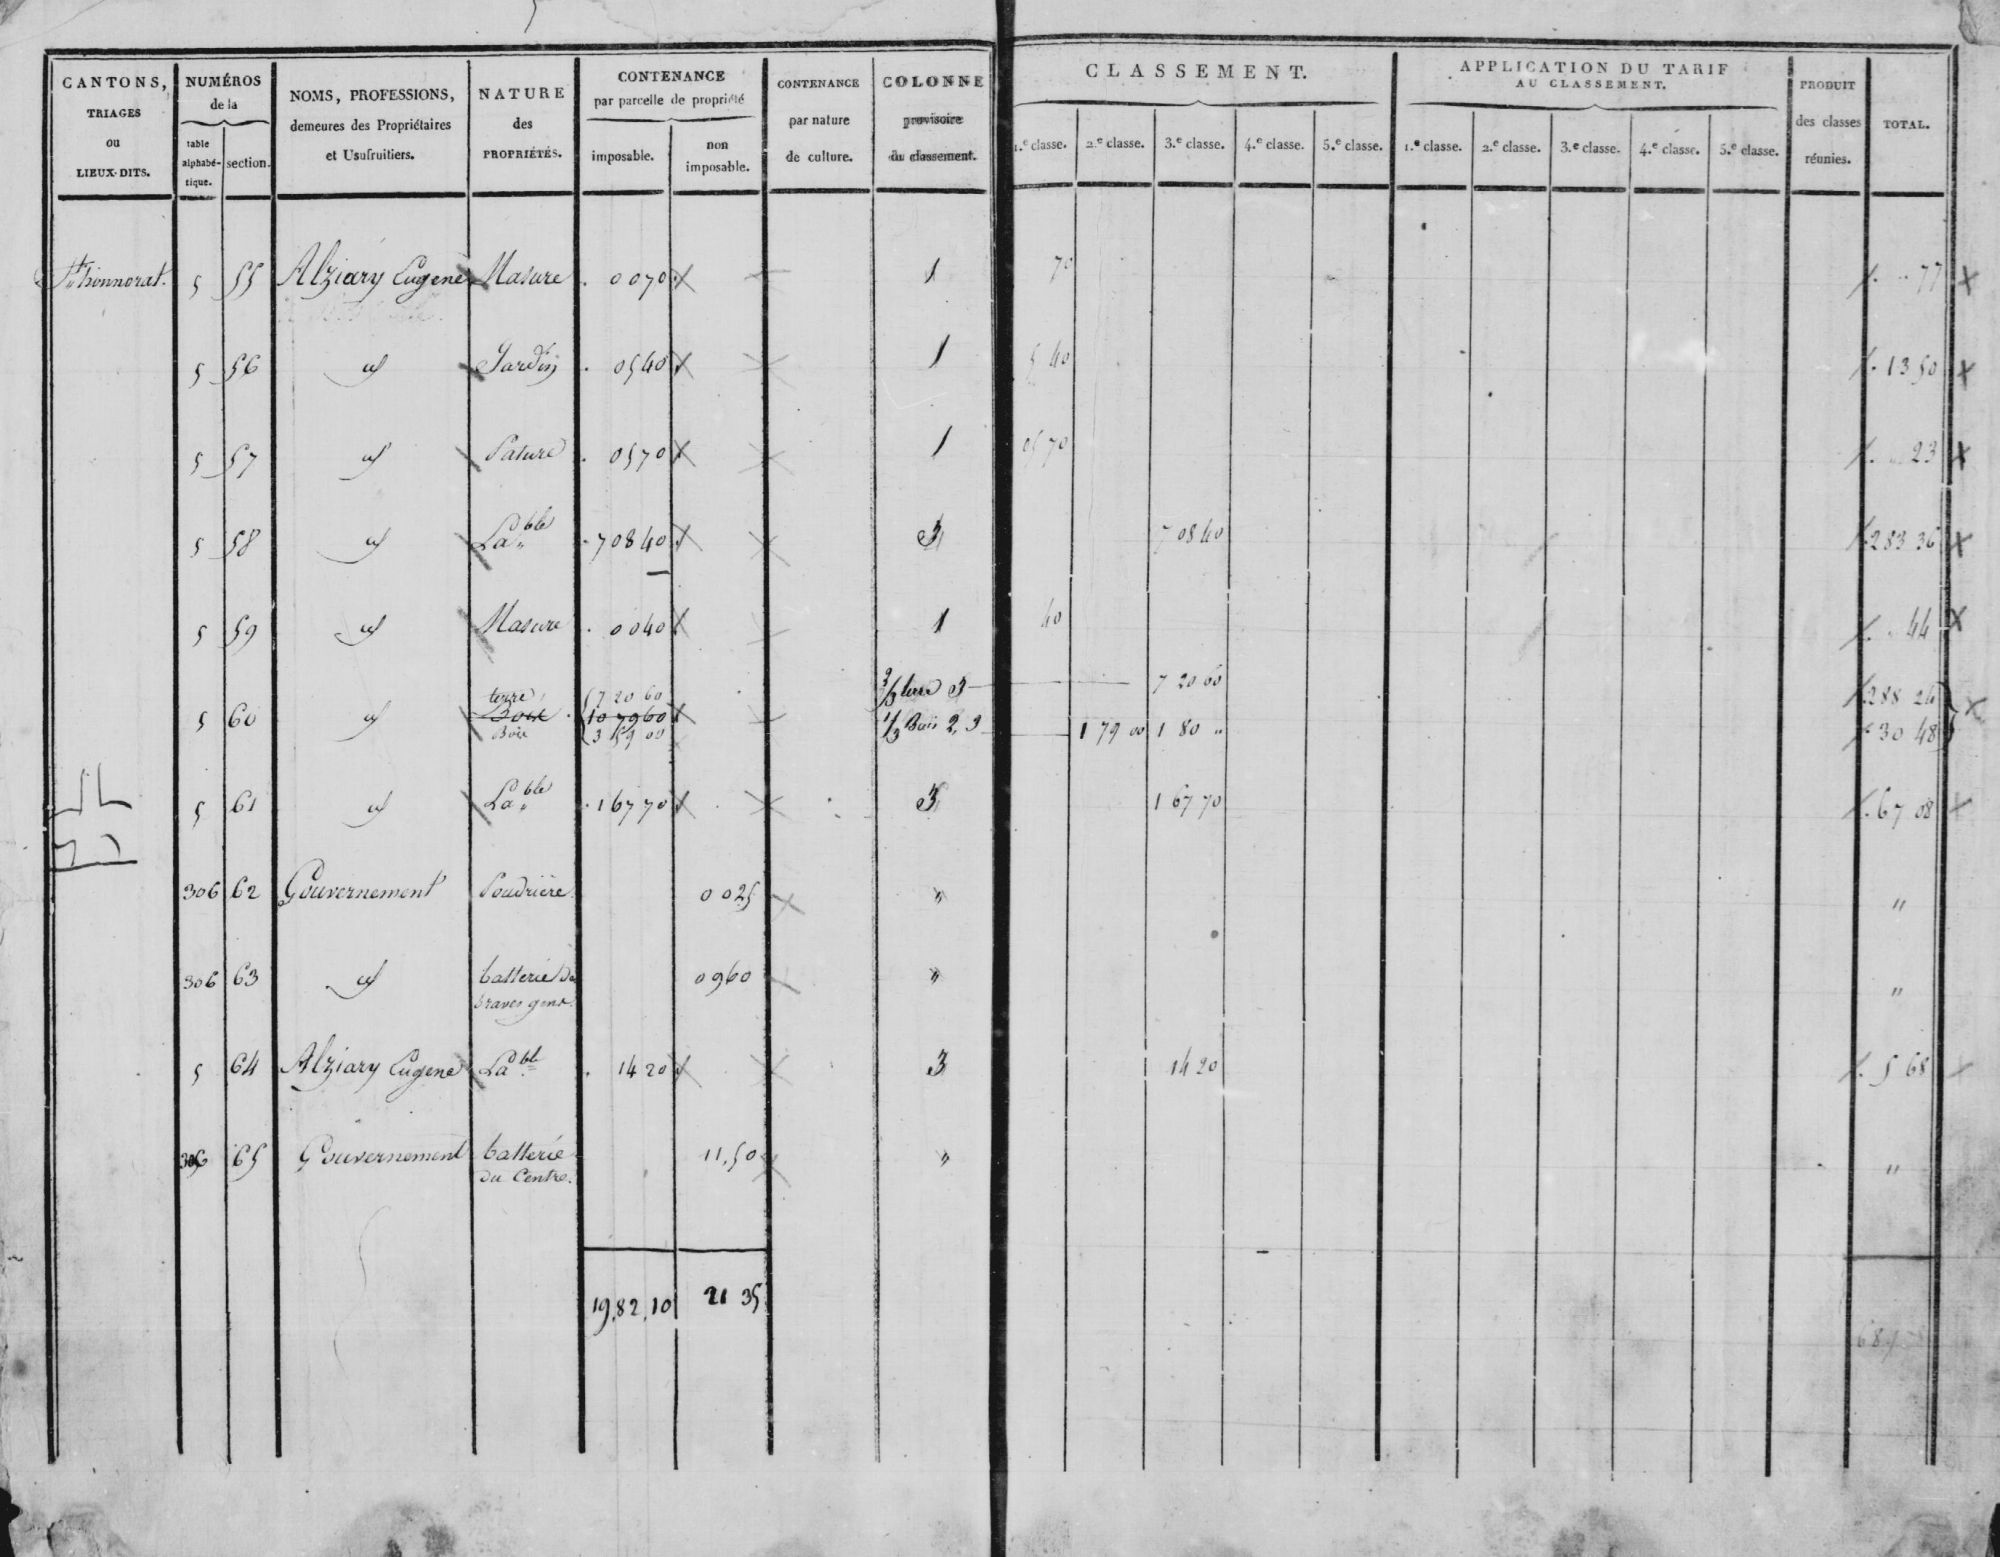 CANTONS, TRIAGES ou LIEUX-DITS.
NUMÉROS de la
table alphabé-tique.
section.
NOMS, PROFESSIONS, demeures des Propriétaires et Usufruitiers.
NATURE des PROPRIÉTÉS.
CONTENANCE par parcelle de propriété
imposable.
non imposable.
CONTENANCE par nature de culture.
COLONNE provisoire du classement.
CLASSEMENT.
1.e classe. 2.e classe. 3.e classe. 4.e classe. 5.e classe.
APPLICATION DU TARIF AU CLASSEMENT.
1.e classe. 2.e classe. 3.e classe. 4.e classe. 5.e classe.
PRODUIT des classes réunies.
TOTAL.
St honnorat. 5 55 Alziary Eugene Masure 0070 1 70 77
5 56 id Jardin 0540 1 5 40 13 50
5 57 id Pature 0570 1 05 70 23
5 58 id La.ble 70840 3 7 08 40 283 36
5 59 id Masure 0040 1 40 44
terre 7 20 60 2/3 terre 3 7 20 60 288 24
5 60 id Bois 107960
Bois 3 59 00 1/3 Bois 2, 3 1 79 00 1 80 " 30 48
5 61 id La.ble 16770 3 1 67 70 67 08
306 62 Gouvernement Poudrière 0025 " "
306 63 id batterie des 0960 " "
braves gens.
5 64 Alziary Eugene La.bl 1420 3 14 20 5 68
306 65 Gouvernement batterie 11,50 " "
du Centre.
19,82,10 21 35